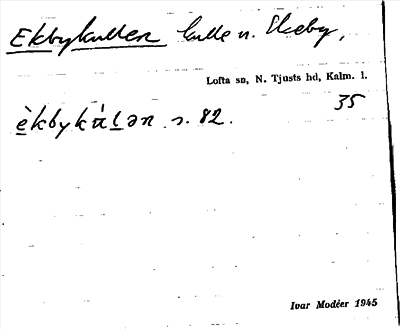 Ekbykullen kulle n. Ekeby,
Lofta sn, N. Tjusts hd, Kalm. l.
35
èkbykúlən s. 82.
Ivar Modéer 1945